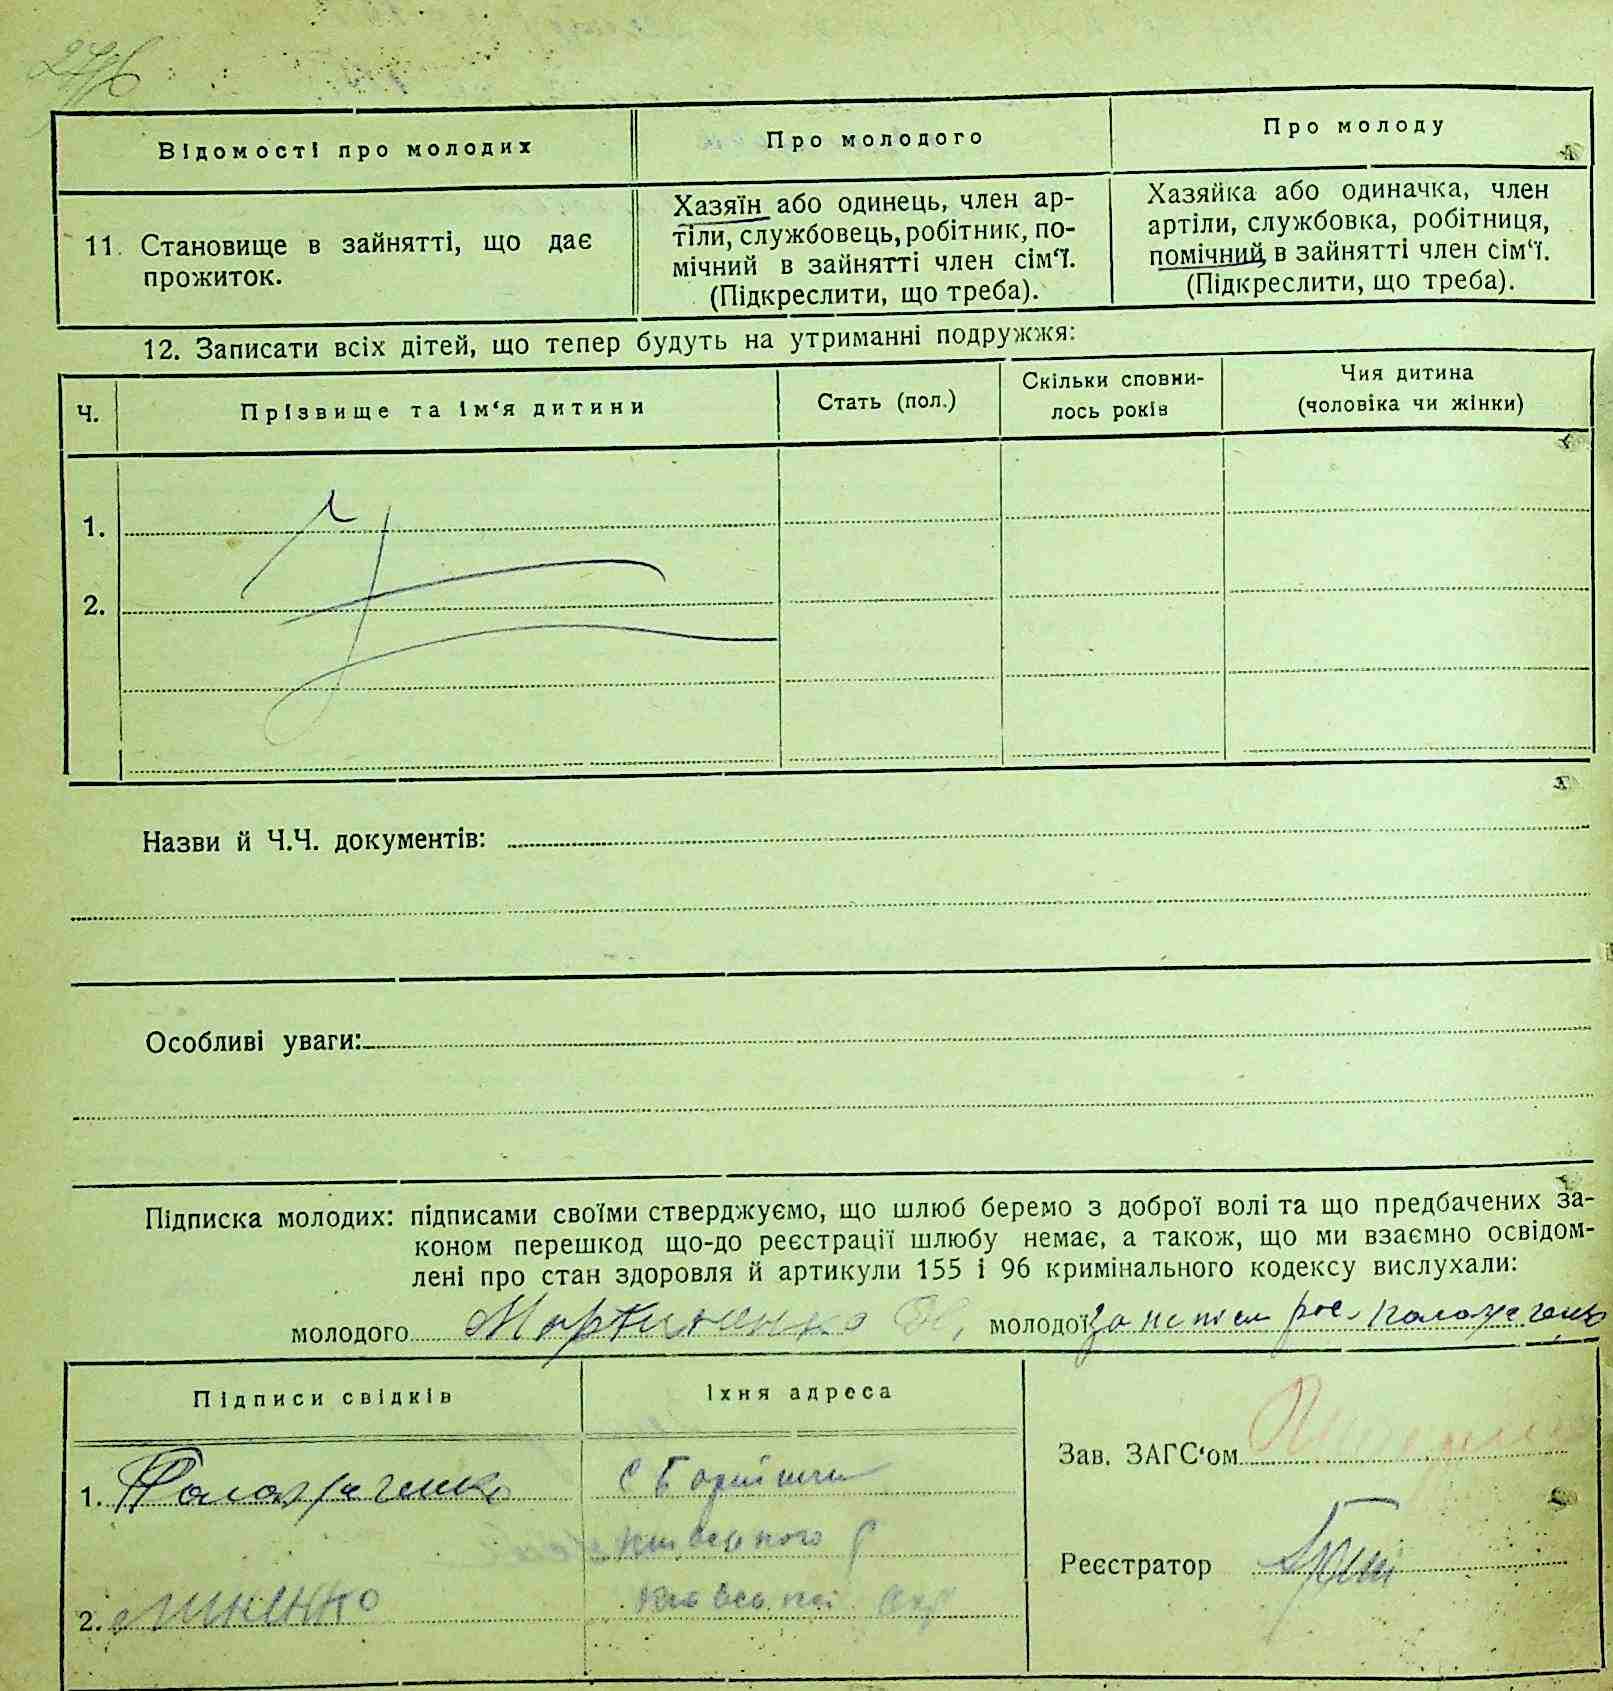 Відомості про молодих
Про молодого
Про молоду
11. Становище в зайнятті, що дає
прожиток.
Хазяїн або одинець, член ар-
тіли, службовець, робітник, по-
мічний в зайнятті член сім‘ї.
(Підкреслити, що треба).
Хазяйка або одиначка, член
артіли, службовка, робітниця,
помічний в зайнятті член сім‘ї.
(Підкреслити, що треба).
12. Записати всіх дітей, що тепер будуть на утриманні подружжя:
Ч.
Прізвище та ім‘я дитини
Стать (пол.)
Скільки сповни-
лось років
Чия дитина
(чоловіка чи жінки)
1.
2.
Назви й Ч.Ч. документів:
Особливі уваги:
Підписка молодих: підписами своїми стверджуємо, що шлюб беремо з доброї волі та що предбачених за-
коном перешкод що-до реєстрації шлюбу немає, а також, що ми взаємно освідом-
лені про стан здоровля й артикули 155 і 96 кримінального кодексу вислухали:
молодого Мартиненко молодої за
Підписи свідків
Їхня адреса
1.
с
2.
Зав. ЗАГС‘ом
Реєстратор